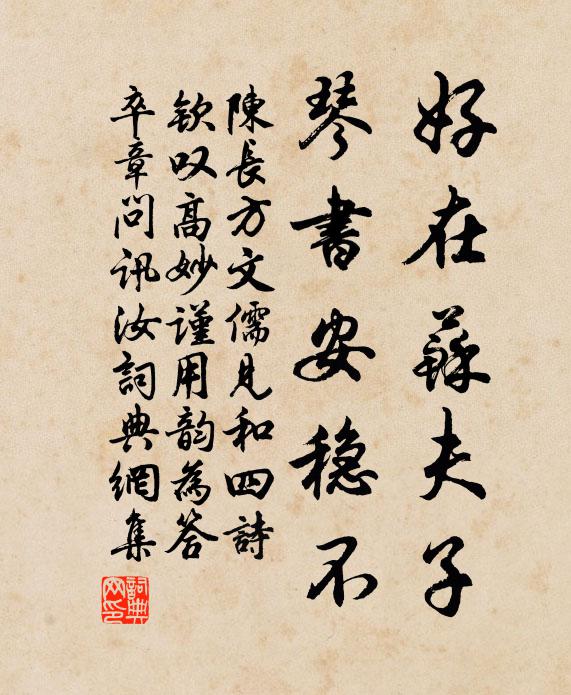 好在蘇夫子
琴書安稳不
陳長方文儒見和四詩
欽叹高妙謹用韵為答
卒章問訊汝詞典網集
詞典网印